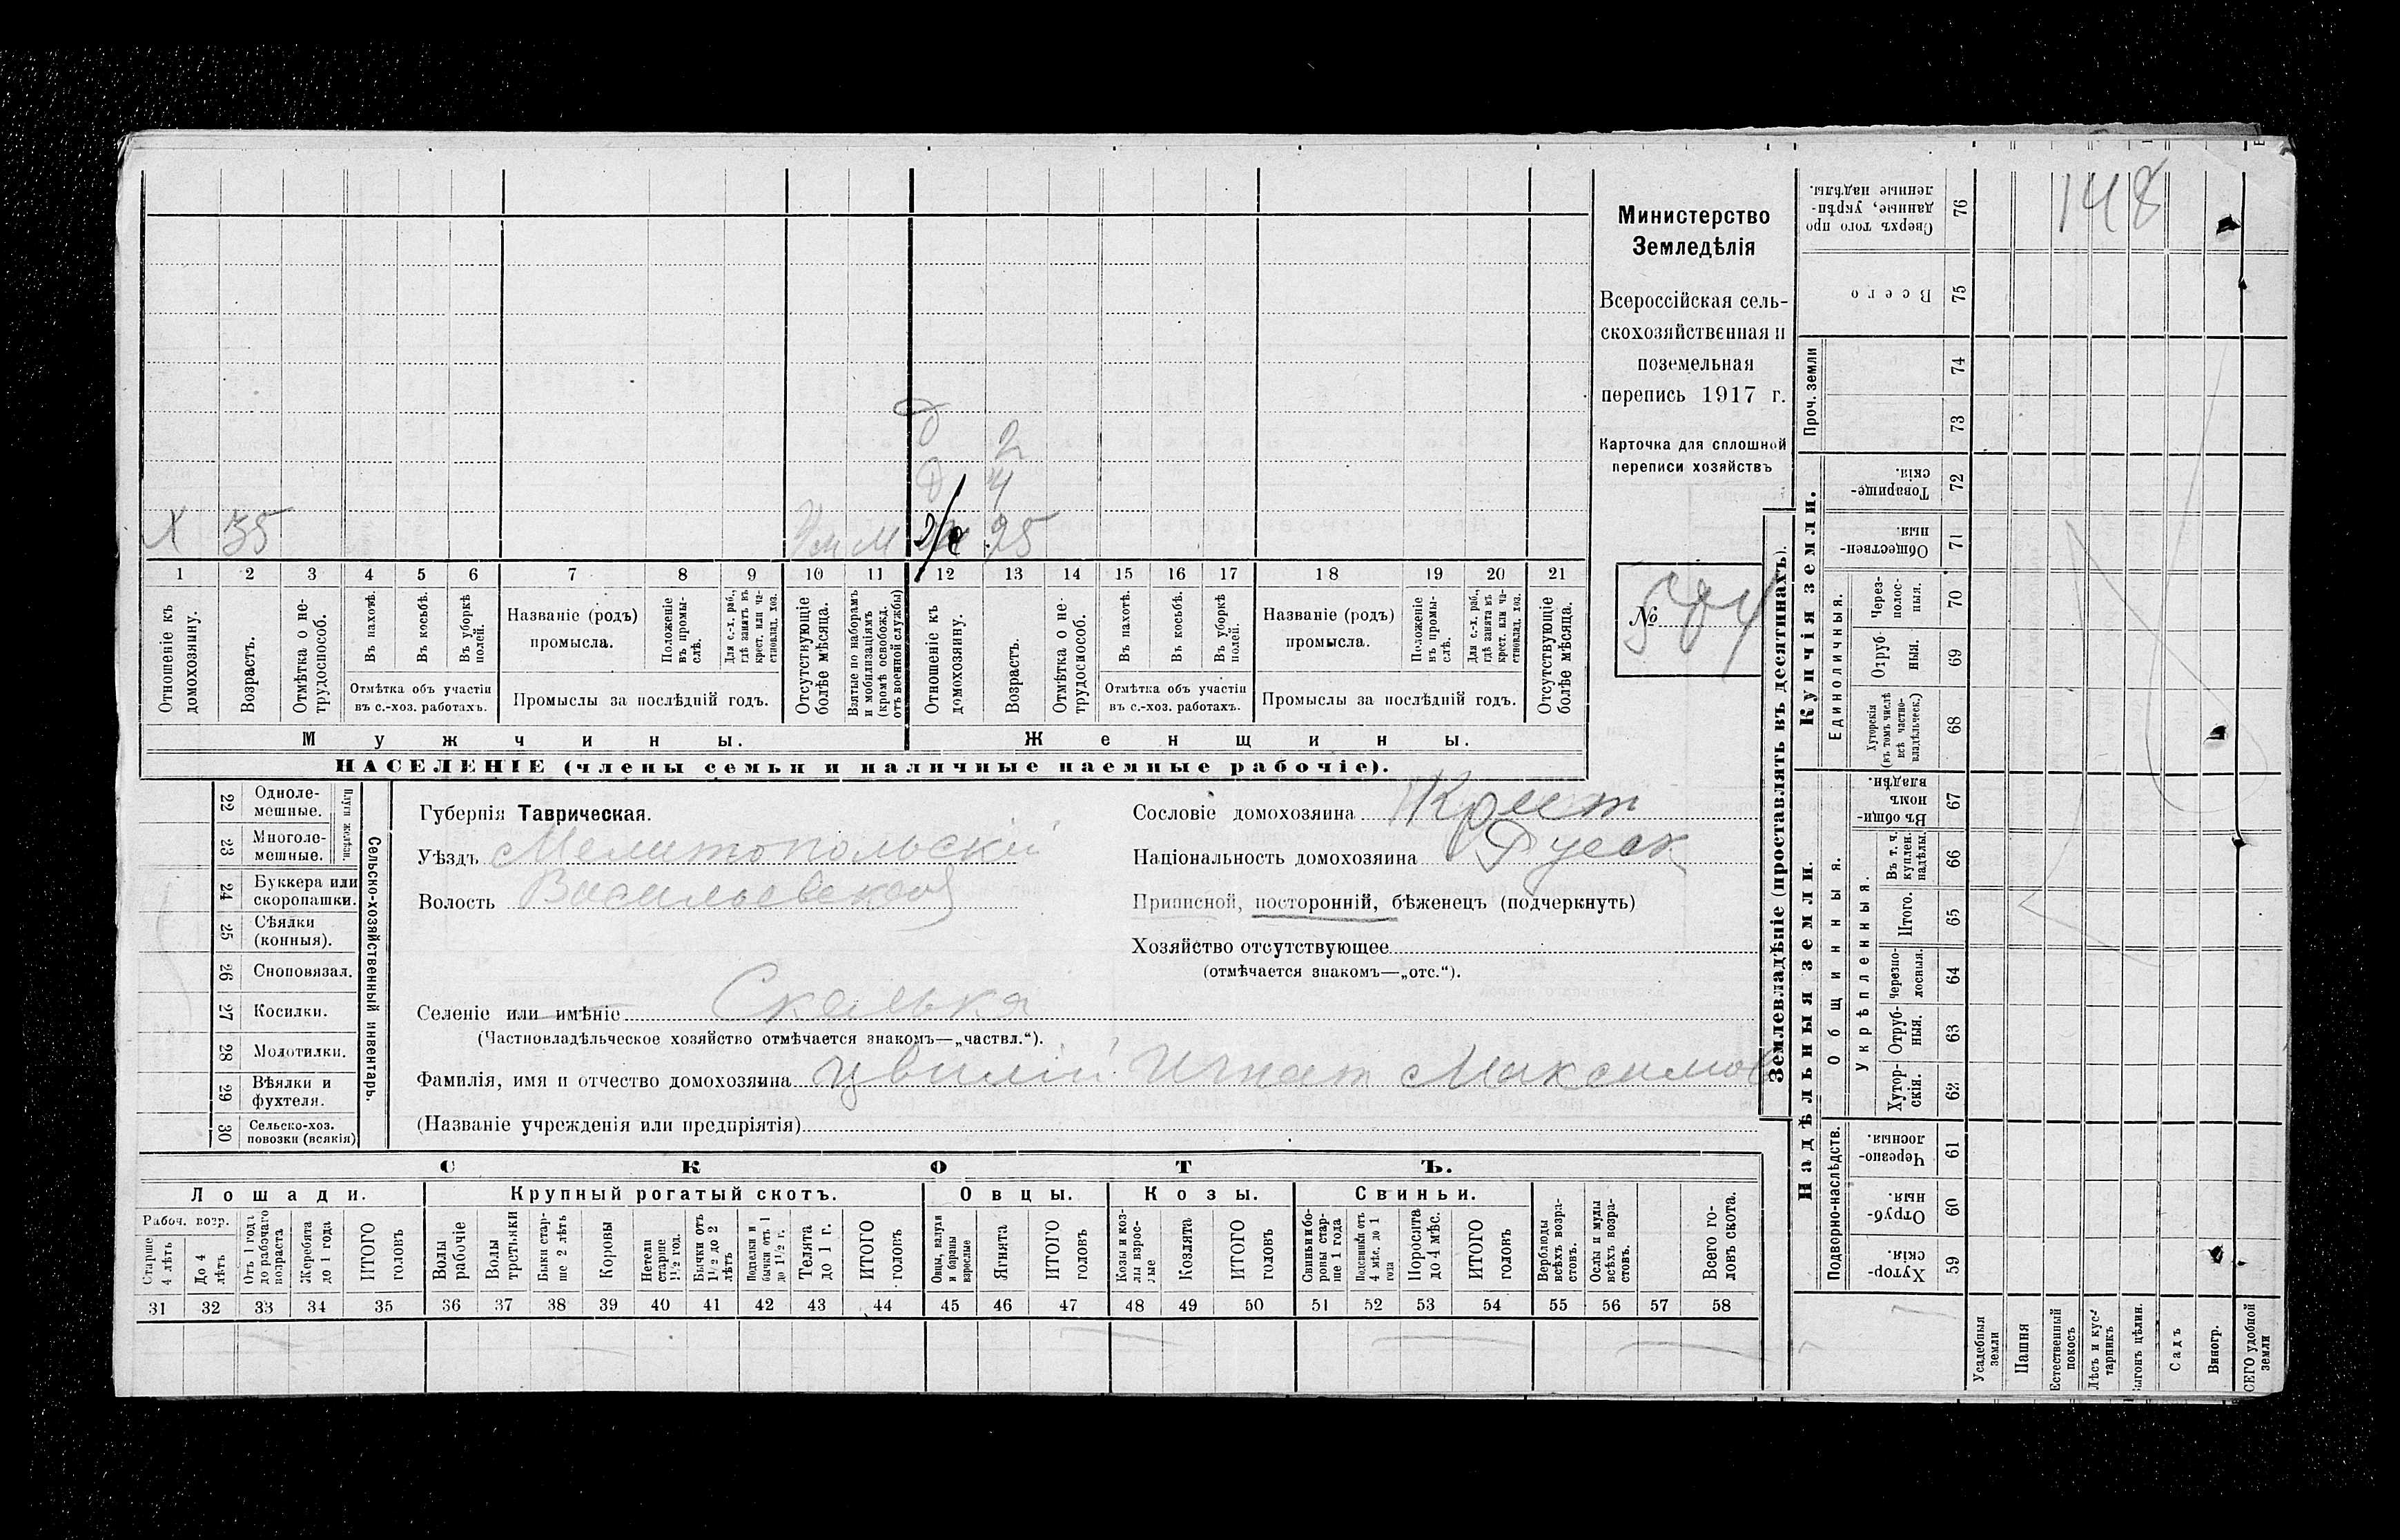 Министерство
Земледѣлія
Всероссійская сель-
скохозяйственная и
поземельная
перепись 1917 г.
Карточка для сплошной
переписи хозяйствъ
№ 584
148
Х 35
д 2
д 4
ж 25
1 2 3 4 5 6 7 8 9 10 11 12 13 14 15 16 17 18 19 20 21
Отношеніе къ домохозяину.
Возрастъ.
Отмѣтка о не-трудоспособ.
Въ пахотѣ.
Въ косьбѣ.
Въ уборкѣ полей.
Отмѣтка объ участіи
въ с.-хоз. работахъ.
Названіе (родъ)
промысла.
Положеніе въ промы-слѣ.
Для с.-х. раб., гдѣ занятъ въ крест. или ча-стновлад. хоз.
Промыслы за послѣдній годъ.
Отсутствующіе болѣе мѣсяца.
Взятые по наборамъ и мобилизаціямъ (кромѣ освобожд. отъ военной службы)
Отношеніе къ домохозяину.
Возрастъ.
Отмѣтка о не-трудоспособ.
Въ пахотѣ.
Въ косьбѣ.
Въ уборкѣ полей.
Отмѣтка объ участіи
въ с.-хоз. работахъ.
Названіе (родъ)
промысла.
Положеніе въ промы-слѣ.
Для с.-х. раб., гдѣ занята въ крест. или ча-стновлад. хоз.
Промыслы за послѣдній годъ.
Отсутствующіе болѣе мѣсяца.
Мужчины. Женщины.
НАСЕЛЕНІЕ (члены семьи и наличные наемные рабочіе).
Сельско-хозяйственный инвентарь.
Плуги желѣзн.
22 Одноле-мешные.
23 Многоле-мешные.
24 Буккера или скоропашки.
25 Сѣялки (конныя).
26 Сноповязал.
27 Косилки.
28 Молотилки.
29 Вѣялки и фухтеля.
30 Сельско-хоз. повозки (всякія)
Губернія Таврическая.
Уѣздъ Мелитопольскій
Волость Васильевская
Сословіе домохозяина Крест
Національность домохозяина Руск
Приписной, посторонній, бѣженецъ (подчеркнуть)
Хозяйство отсутствующее
(отмѣчается знакомъ—„отс.“).
Селеніе или имѣніе Скелька
(Частновладѣльческое хозяйство отмѣчается знакомъ—„частвл.“).
Фамилія, имя и отчество домохозяина Цвилій Игнат Максимов
(Названіе учрежденія или предпріятія)
СКОТЪ.
Лошади. Крупный рогатый скотъ. Овцы. Козы. Свиньи.
Рабоч. возр.
Старше 4 лѣтъ
До 4 лѣтъ
Отъ 1 года до рабочаго возраста
Жеребята до 1 года
ИТОГО головъ
Волы рабочіе
Волы третьяки
Быки стар-ше 2 лѣтъ
Коровы
Нетели старше 1½ год.
Бычки отъ 1½ до 2 лѣтъ
Телята до 1 г.
ИТОГО головъ
Овцы, валухи и бараны взрослые
Ягнята
ИТОГО головъ
Козы и коз-лы взрос-лые
Козлята
ИТОГО головъ
Свиньи и бо-ровы стар-ше 1 года
Подсвинки отъ 4 мѣс. до 1 года
Поросята до 4 мѣс.
ИТОГО головъ
Верблюды всѣхъ возра-стовъ.
Ослы и мулы всѣхъ возра-стовъ.
Всего го-ловъ скота.
31 32 33 34 35 36 37 38 39 40 41 42 43 44 45 46 47 48 49 50 51 52 53 54 55 56 57 58
Землевладѣніе (проставлять въ десятинахъ).
Надѣльныя земли.
Подворно-наслѣдств.
59 Хутор-скія.
60 Отруб-ныя.
61 Черезпо-лосныя.
Общинныя.
Укрѣпленныя.
62 Хутор-скія.
63 Отруб-ныя.
64 Черезпо-лосныя.
65 Итого.
66 Въ т. ч. куплен. надѣлы.
67 Въ общин-номъ владѣн.
Купчія земли.
Единоличныя.
68 Хуторскія (въ томъ числѣ всѣ частно-владѣльческ.)
69 Отруб-ныя.
70 Через-полос-ныя.
71 Обществен-ныя.
72 Товарище-скія.
Проч. земли
73 74
75 Всего
76 Сверхъ того про-данные, укрѣп-ленные надѣлы.
Усадебныя земли
Пашня
Естественный покосъ
Лѣсъ и кус-тарникъ
Выгонъ цѣлин.
Садъ
Виногр.
ВСЕГО удобной земли